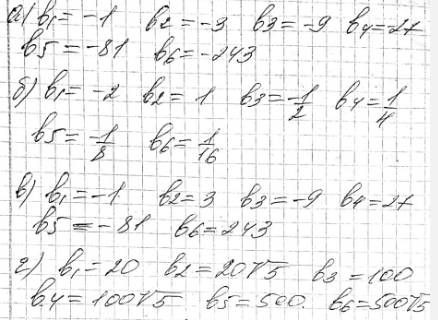 а) b₁ = -1 b₂ = -3 b₃ = -9 b₄ = -27
b₅ = -81 b₆ = -243
б) b₁ = -2 b₂ = 1 b₃ = -1/2 b₄ = 1/4
b₅ = -1/8 b₆ = 1/16
в) b₁ = -1 b₂ = 3 b₃ = -9 b₄ = 27
b₅ = -81 b₆ = 243
г) b₁ = 20 b₂ = 20√5 b₃ = 100
b₄ = 100√5 b₅ = 500. b₆ = 500√5